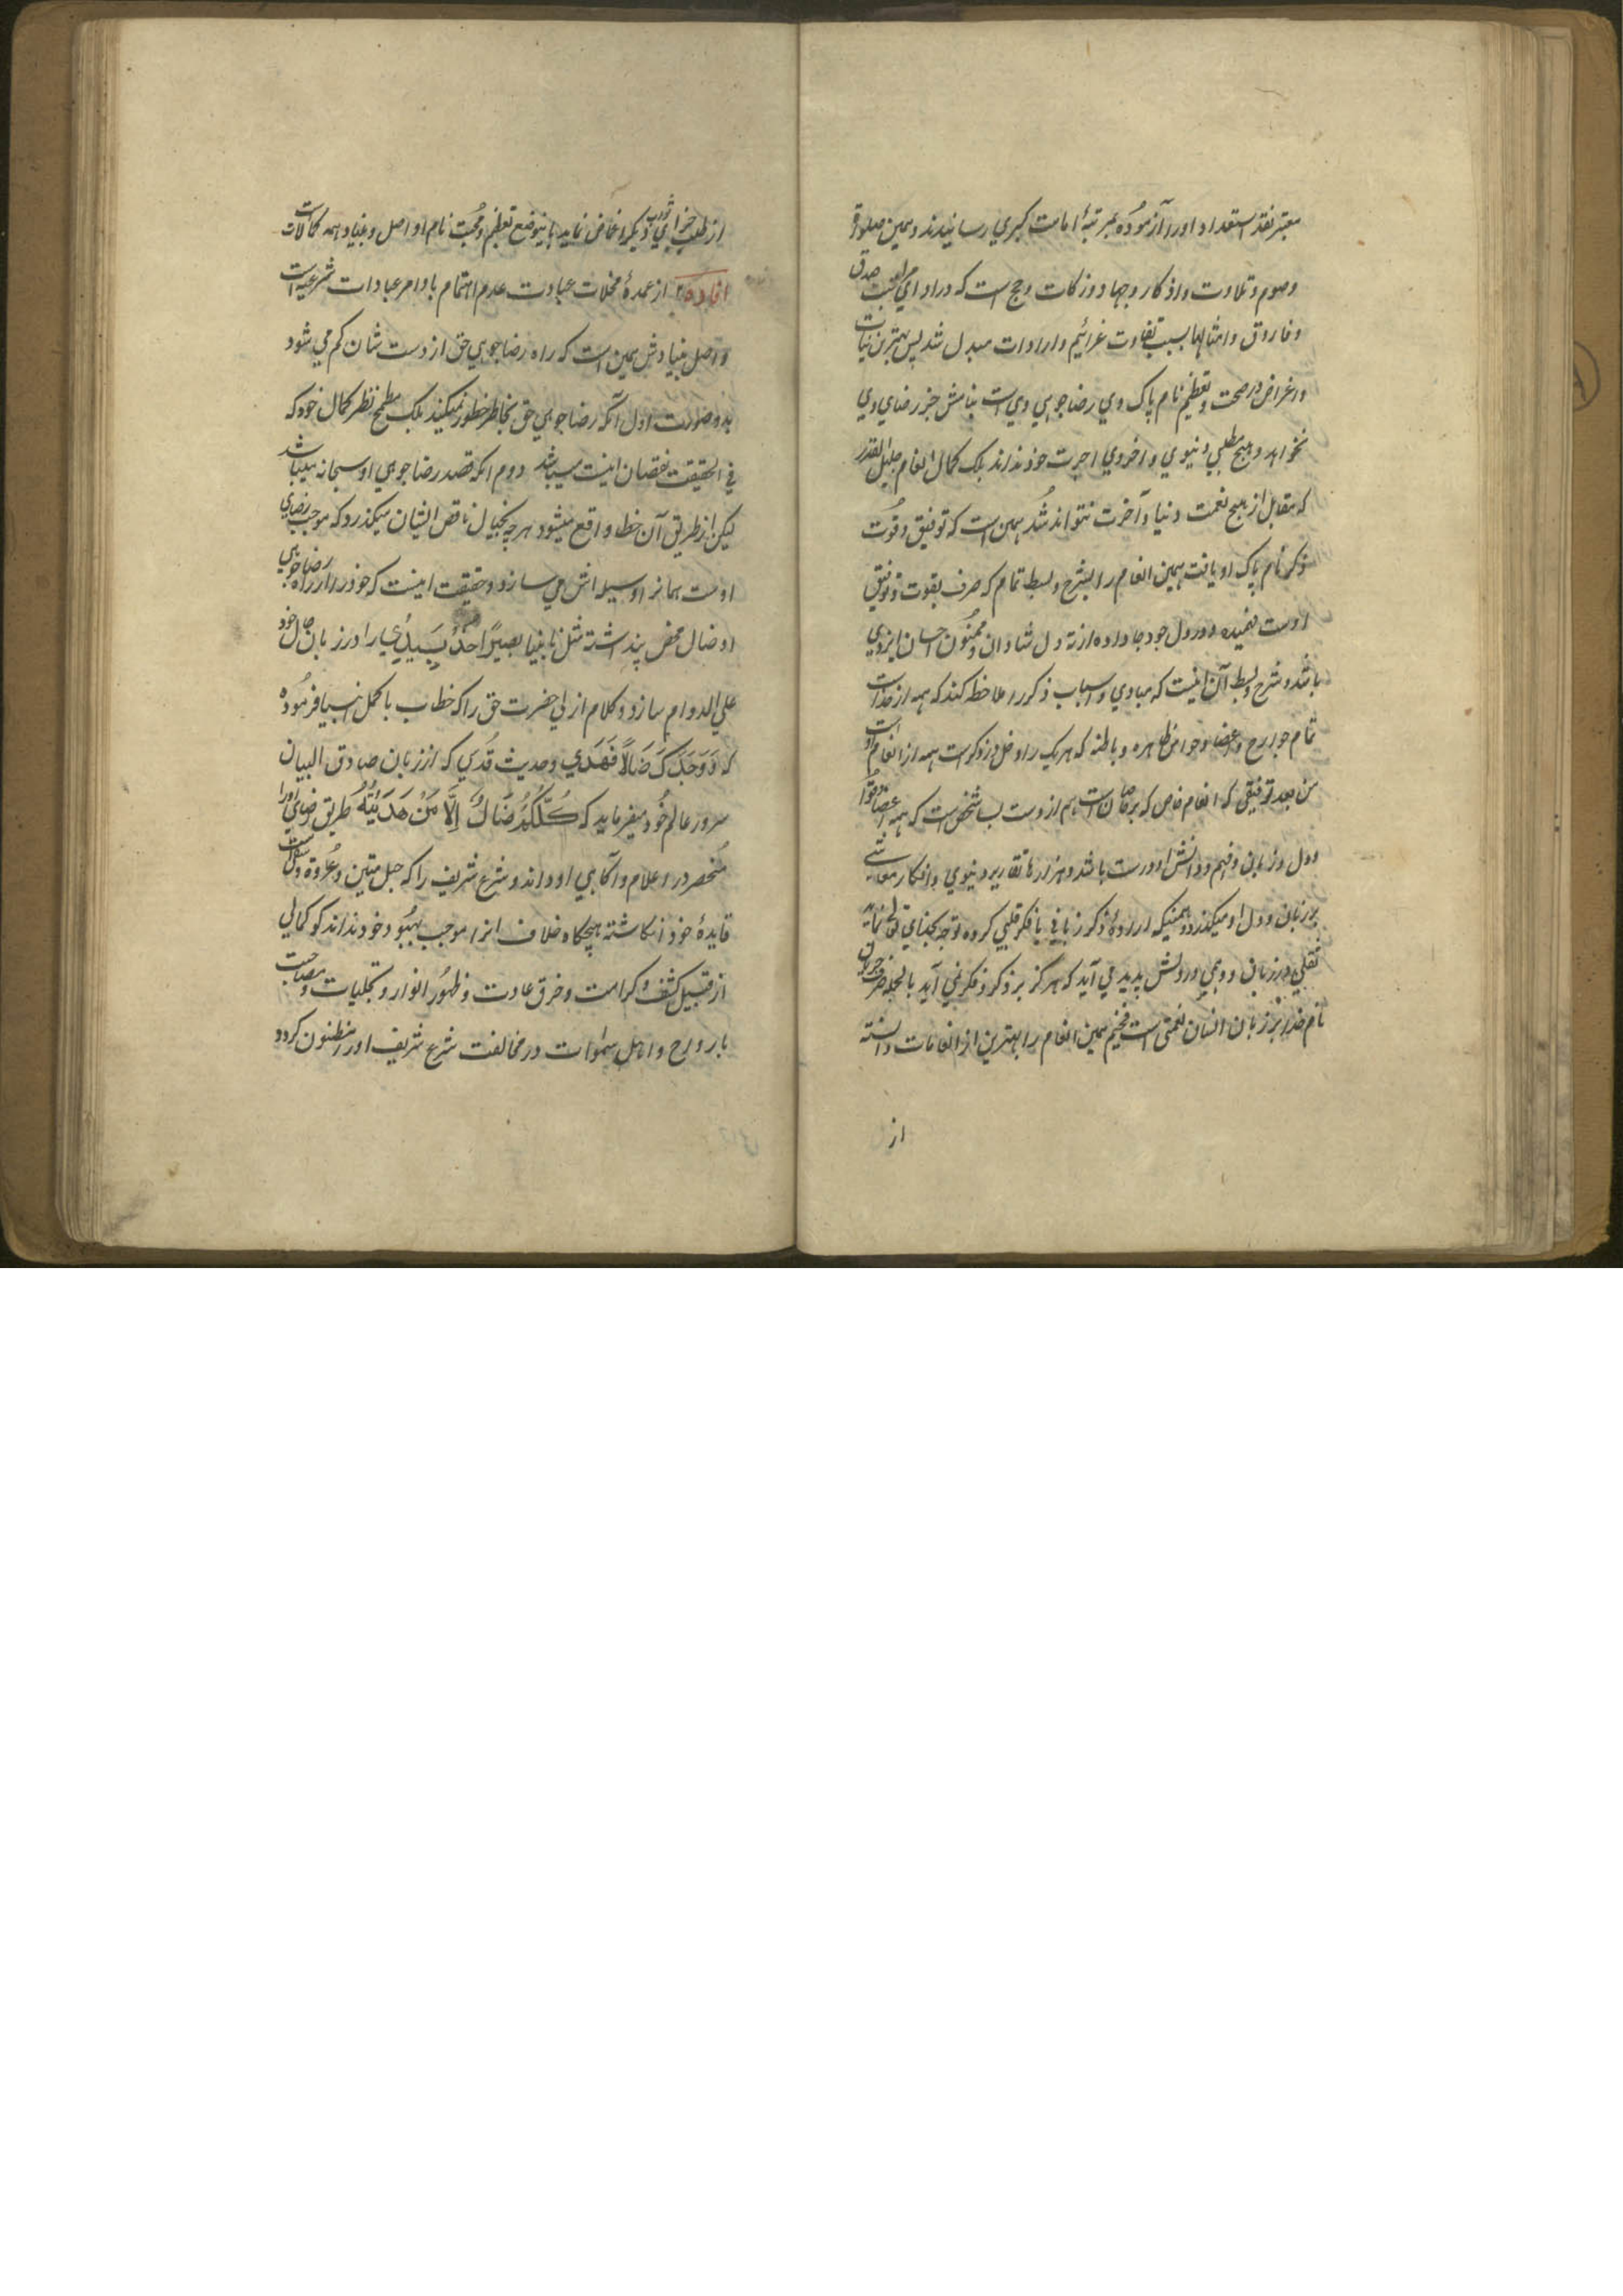 معتبر نقد استعداد او را آزموده بمرتبهٔ امامت کبري رسانیدند و همین صلوة
و صوم و تلاوت و اذکار و جهاد و زکات و حج است که در ادای مراتب صدق
و فاروق و امثالهما بسبب تفاوت عزائیم و ارادات مبدل شد پس بهترین نیات
و اغراض در صحت و تعظیم نام پاک وي رضا جویي وي است بنامش جز رضاي وي
نخواهد و هیچ مطلبي دنیوي و اخروي اجرت خود نداند بلکه کمال انعام جلیل القدر
که مقابل از هیچ نعمت دنیا و آخرت نتواند شُد همین است که توفیق و قوت
ذکر نام پاک او یافت همین انعام را بشرح و بسط تمام که صرف بقوت و توفیق
اوست فهمیده و در دل خود جا داده از ته دل شادان و ممنُون احسان ایزدي
باشد و شرح و بسط آن اینست که مبادي و اسباب ذکر را ملاحظه کند که همه از خداست
تمام جوارح و اعضا و حواس ظاهره و باطنه که هر یک را دخل در ذکر است همه از انعام اوست
من بعد توفیقي که انعام خاص که بر خاصان است هم از دوست بسا شخص است که همه اعضا و قوا
و دل و زبان و فهم و دانش او درست باشد و هزارها تقاریر دنیوي و افکار معاشي
بر زبان و دل او میگذرد و همینکه ارادهٔ ذکر زباني یا فکر قلبي کرده توجه بجناي تعالی نماید
ثقلي در زبان و وهمي در دلش پدید مي آید که هرگز بر ذکر و فکر نمي آید بالجمله جریان
نام خدا بر زبان انسان نعمتي است فخیم همین انعام را بهترین از انعامات دانسته
از
از طلب جزاي ثواب دیگر اغماض نماید باینوضع تعظیم و محبت نام او اصل و بنیاد همه کمالات است
افاده ۲ از عمدهٔ مخلات عبادت عدم اهتمام باوامر عبادات شرعیه است
و اصل بنیادش همین است که راه رضا جویي حق از دست شان کم مي شود
بدو صورت اول آنکه رضا جویي حق بخاطر خطور نمیکند بلکه مطمح نظر کمال خود که
في الحقیقت نقصان اینست میباشد دوم انکه قصد رضا جویي او سبحانه میباشد
لیکن از طریق آن خطا واقع میشود هر چه بخیال ناقص ایشان میگذرد که موجب رضاي
اوست همانرا وسیله اش مي سازد و حقیقت اینست که خود را در راه رضا جویي
او ضال محض پنداشته مثل نابینا بصیرًا خُذ بِیَدِي را ورد زبان حال خود
علي الدوام سازد و کلام ازلي حضرت حق را که خطاب باکمل انبیا فرمُوده
که وَوَجَدَكَ ضَالًّا فَهَدَي و حدیث قُدسي که از زبان صادق البیان
سرور عالم خُود میفرماید که كُلُّكُمْ ضَالٌّ إِلَّا مَنْ هَدَيْتُهُ طریق رضاي او را
مُنحصر در اعلام و آگاهي او داند و شرع شریف را که حبل متین و عُروة وثقی است
قایدهٔ خود انگاشته هیچگاه خلاف انرا موجب بهبُود خود نداند گو کمالي
از قبیل کشف و کرامت و خرق عادت و ظهُور انوار و تجلیات و مصاحبت
با ارواح و اهل سمٰوات در مخالفت شرع شریف او را مظنون گردد